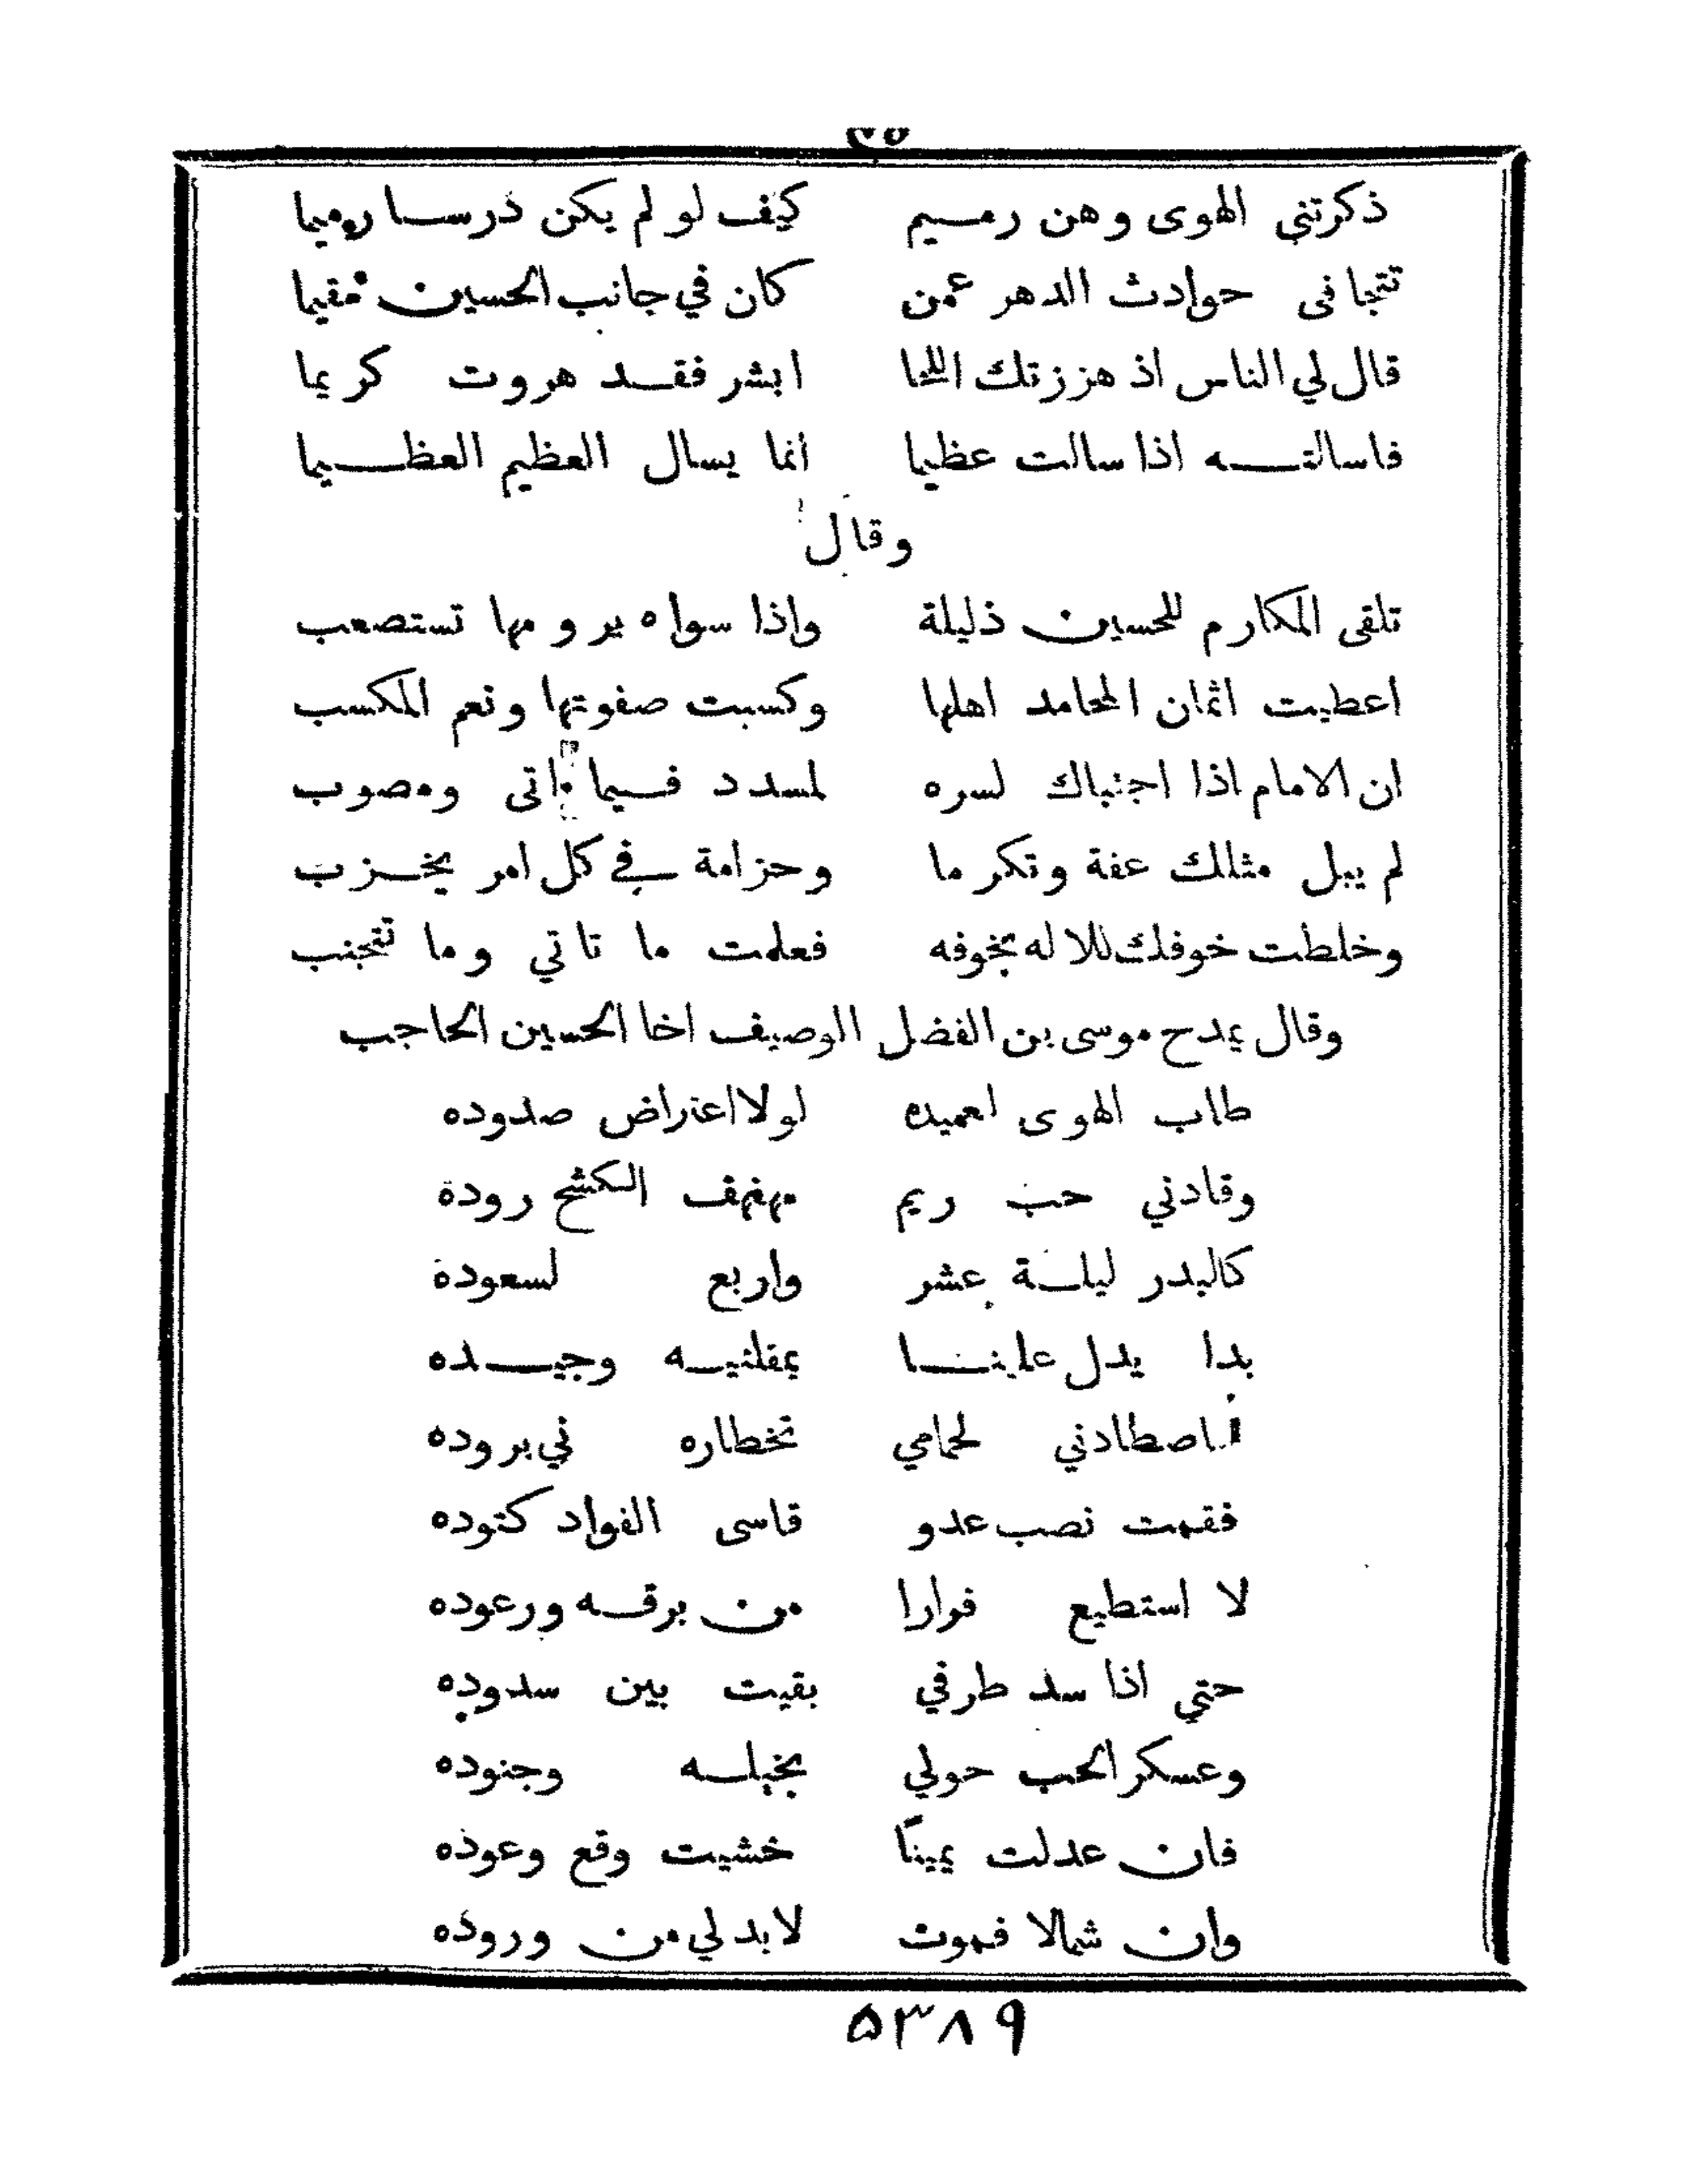 ذكرتني الهوى وهن رميم كيف لو لم يكن درسا رميما
تتجافى حوادث الدهر عمن كان في جانب الحسين مقيما
قال لي الناس اذ هززتك للحا ابشر فقد هروت كريما
فاسالته اذا سالت عظيما انما يسال العظيم العظيما
وقال
تلقى المكارم للحسين ذليلة واذا سواه يرومها تستصعب
اعطيت اثمان المحامد اهلها وكسبت صفوتها ونعم المكسب
ان الامام اذا اجتباك لسره لمسدد فيما اتى ومصوب
لم يبل مثلك عفة وتكرما وحزامة في كل امر يخزب
وخلطت خوفك للاله بخوفه فعلمت ما تاتي وما تتجنب
وقال يمدح موسى بن الفضل الوصيف اخا الحسين الحاجب
طاب الهوى لعميده لولا اعتراض صدوده
وقادني حب ريم مهفهف الكشح رودة
كالبدر ليلة عشر واربع لسعودة
بدا يدل علينا بمقلتيه وجيده
اصطادني لحمامي تخطاره في بروده
فقمت نصب عدو قاسى الفواد كنوده
لا استطيع فرارا من برقه ورعوده
حتي اذا سد طرفي بقيت بين سدوده
وعسكر الحب حولي بخيله وجنوده
فان عدلت يمينًا خشيت وقع وعوده
وان شمالا فموت لابد لي من وروده
٥٣٨٩